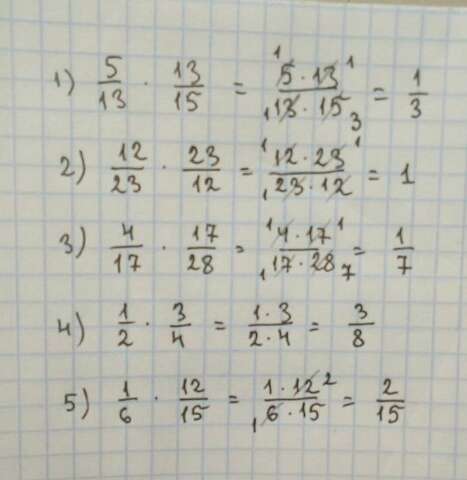 1) 5/13 · 13/15 = 5·13/13·15 = 1/3
2) 12/23 · 23/12 = 12·23/23·12 = 1
3) 4/17 · 17/28 = 4·17/17·28 = 1/7
4) 1/2 · 3/4 = 1·3/2·4 = 3/8
5) 1/6 · 12/15 = 1·12/6·15 = 2/15